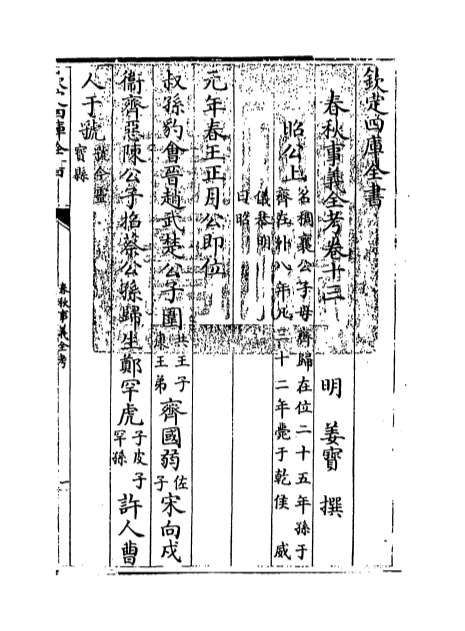 欽定四庫全書
春秋事義全考卷十三
明 姜寶 撰
昭公上
名稠襄公子母齊歸在位二十五年孫于
齊在外八年凡三十二年薨于乾侯 威
儀恭明
曰昭
元年春王正月公即位
叔孫豹會晉趙武楚公子圍
共王子
康王弟
齊國弱
佐
子
宋向戌
衞齊惡陳公子招蔡公孫歸生鄭罕虎
子皮子
罕孫
許人曹
人于虢
虢今靈
寶縣
春秋事義全考
一